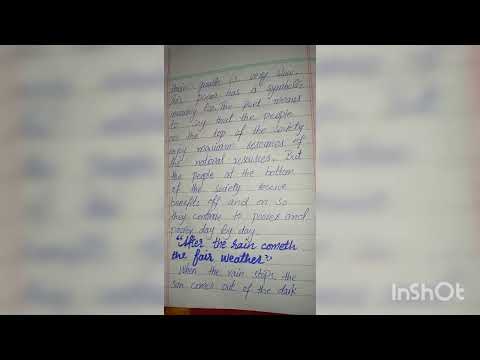 their growth is very slow.
This poem has a symbolic
meaning too. The poet means
to say that the people
on the top of the society
enjoy maximum resources of
the natural resources. But
the people at the bottom
of the society receive
benefits off and on so
they continue to poorer and
poorer day by day.
"After the rain cometh
the fair weather"
When the rain stops the
sun comes out of the dark
InShOt